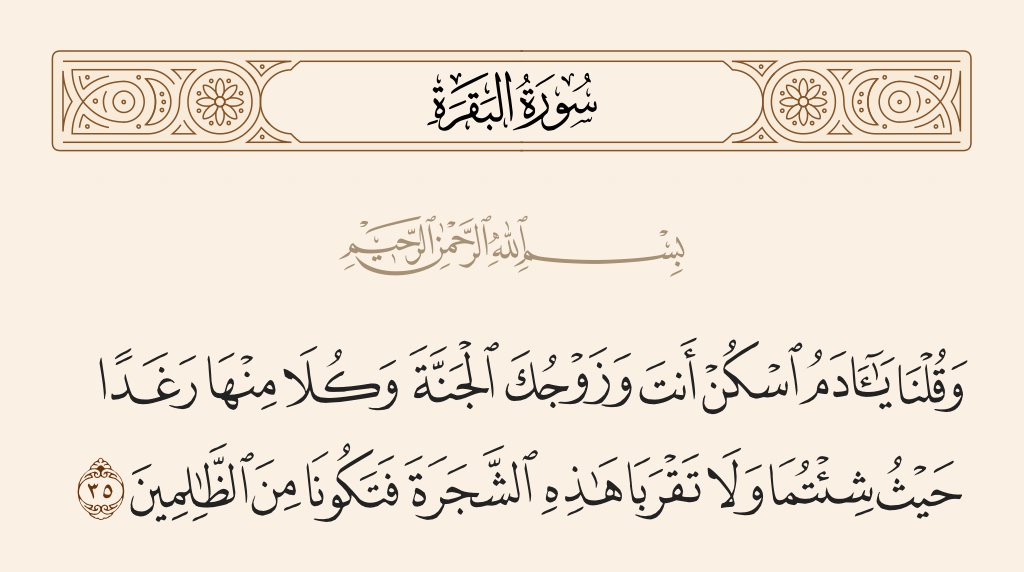 سُورَةُ البَقَرَةِ
بِسْمِ ٱللَّهِ ٱلرَّحْمَٰنِ ٱلرَّحِيمِ
وَقُلْنَا يَٰٓـَٔادَمُ ٱسْكُنْ أَنتَ وَزَوْجُكَ ٱلْجَنَّةَ وَكُلَا مِنْهَا رَغَدًا
حَيْثُ شِئْتُمَا وَلَا تَقْرَبَا هَٰذِهِ ٱلشَّجَرَةَ فَتَكُونَا مِنَ ٱلظَّٰلِمِينَ ٣٥